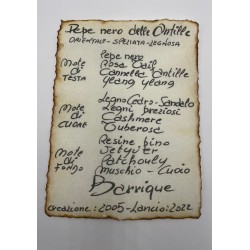 Pepe nero delle Antille
ORIENTALE - SPEZIATA - LEGNOSA
Pepe nero
Note Rosa Oail
di Cannella Antille
TESTA Ylang ylang
Legno Cedro - Sandalo
Note Legni preziosi
di Cashmere
CUORE Tuberosa
Resine pino
Note Vetyver
di Patchouly
FONDO Muschio - Cuoio
Barrique
Creazione: 2005 - Lancio: 2022